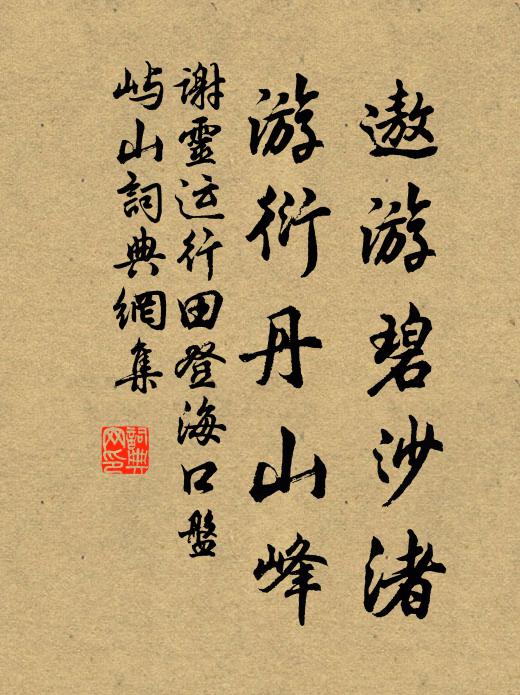 遨游碧沙渚
游衍丹山峰
谢靈运行田登海口盤
屿山詞典網集
詞典
网印